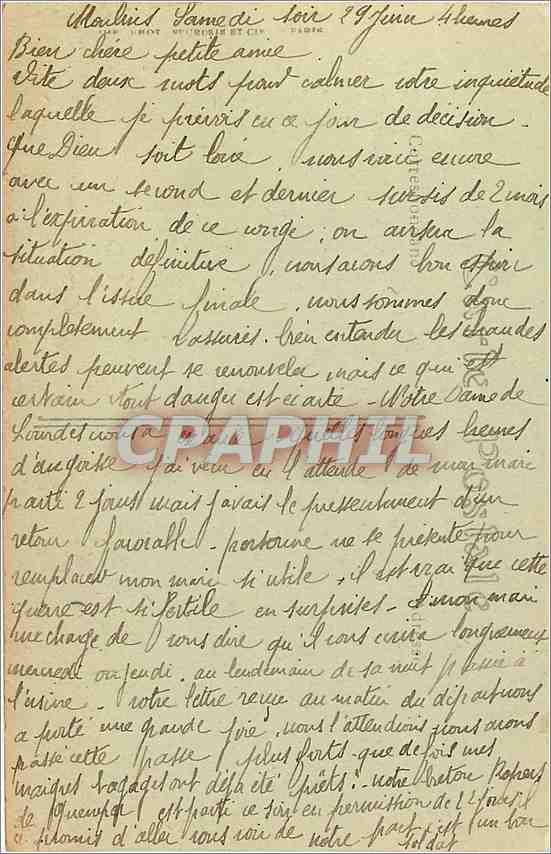 Moulins Samedi soir 29 Juin 4 heures
Bien chère petite amie
Vite deux mots pour calmer votre inquiétude
laquelle je prévois en ce jour de décision.
Que Dieu soit loué, nous voici encore
avec un second et dernier sursis de 2 mois
à l'expiration de ce congé, on avisera la
situation définitive, nous avons bon espoir
dans l'issue finale, nous sommes donc
complètement rassurés. bien entendu les chaudes
alertes peuvent se renouveler, mais ce qui est
certain tout danger est écarté - Notre Dame de
Lourdes nous a quelles longues heures
d'angoisse j'ai vécu en l'attente de mon mari
parti 2 jours mais j'avais le pressentiment d'un
retour favorable - personne ne se présente pour
remplacer mon mari si utile, il est vrai que cette
guerre est si fertile en surprises - mon mari
me charge de vous dire qu'il vous écrira longuement
mercredi ou jeudi. au lendemain de sa nuit passée à
l'usine - votre lettre reçue au matin du départ nous
a porté une grande joie, nous l'attendions nous avons
passé cette passe, plus forts que de fois mes
maigres bagages ont déjà été prêts! - notre breton
de est parti ce soir en permission de 22 jours il
a promis d'aller vous voir de notre part c'est un bon
soldat
CPARHIL
Correspondance